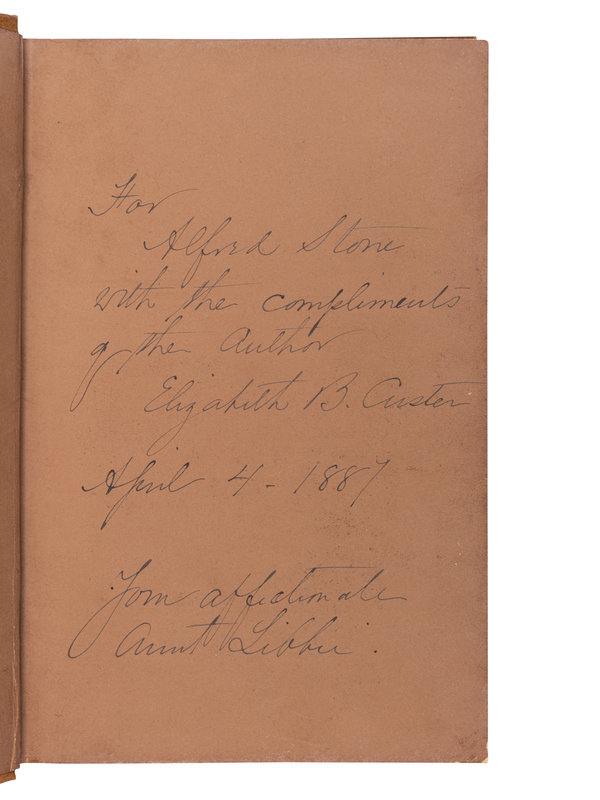 For
Alfred Stone
with the compliments
of the Author
Elizabeth B. Custer
April 4 - 1887
Your affectionate
Aunt Libbie.